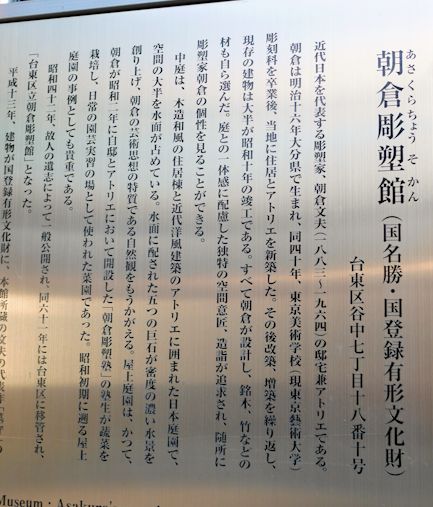 あさくらちょうそかん
朝倉彫塑館(国名勝・国登録有形文化財)
台東区谷中七丁目十八番十号
近代日本を代表する彫塑家、朝倉文夫(一八八三~一九六四)の邸宅兼アトリエである。
朝倉は明治十六年大分県で生まれ、同四十年、東京美術学校(現東京藝術大学)
彫刻科を卒業後、当地に住居とアトリエを新築した。その後改築、増築を繰り返し、
現存の建物は大半が昭和十年の竣工である。すべて朝倉が設計し、銘木、竹などの
材も自ら選んだ。庭との一体感に配慮した独特の空間意匠、造詣が追求され、随所に
彫塑家朝倉の個性を見ることができる。
中庭は、木造和風の住居棟と近代洋風建築のアトリエに囲まれた日本庭園で、
空間の大半を水面が占めている。水面に配された五つの巨石が密度の濃い水景を
創り上げ、朝倉の芸術思想の特質である自然観をもうかがえる。屋上庭園は、かつて、
朝倉が昭和二年に自邸とアトリエにおいて開設した「朝倉彫塑塾」の塾生が蔬菜を
栽培し、日常の園芸実習の場として使われた菜園であった。昭和初期に遡る屋上
庭園の事例としても貴重である。
昭和四十二年、故人の遺志によって一般公開され、同六十一年には台東区に移管され、
「台東区立朝倉彫塑館」となった。
平成十三年、建物が国登録有形文化財に、本館所蔵の文夫の代表作
Museum・Asakura's